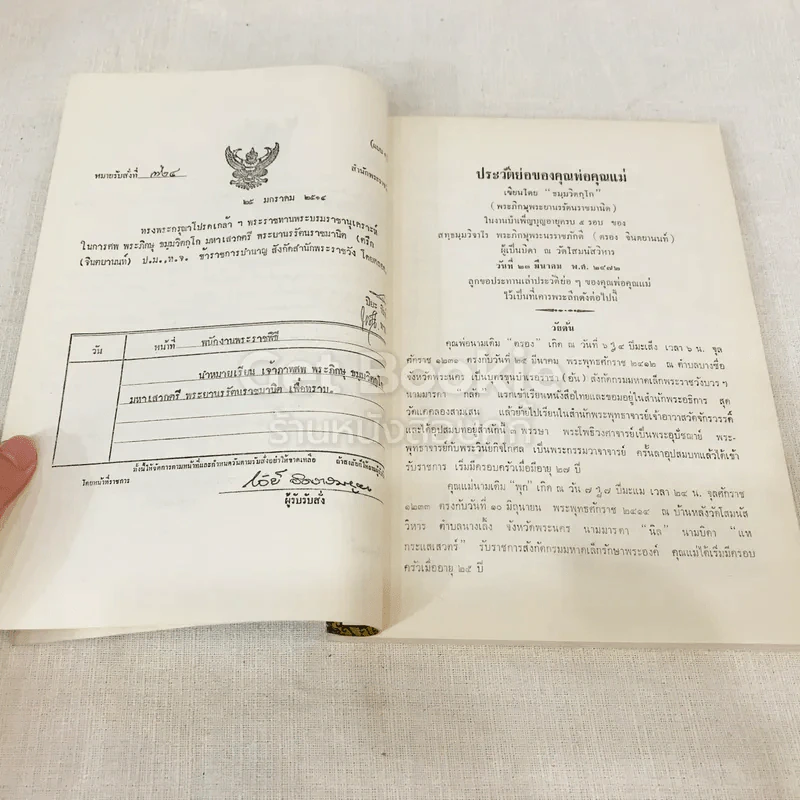 หมายรับสั่งที่ ๗๒๔
สำนักพระราช
๒๕ มกราคม ๒๕๑๔
ทรงพระกรุณาโปรดเกล้า ฯ พระราชทานพระบรมราชานุเคราะห์
ในการศพ พระภิกษุ ขมฺมวิตกฺโก มหาเสวกตรี พระยานรรัตนราชมานิต (ตรึก
(จินตยานนท์) ป.ม.,ท.จ. ข้าราชการบำนาญ สังกัดสำนักพระราชวัง โดย
ปิยะ
วัน หน้าที่ พนักงานพระราชพิธี
นำหมายเรียน เจ้าภาพศพ พระภิกษุ ขมฺมวิตกฺโก
มหาเสวกตรี พระยานรรัตนราชมานิต เพื่อทราบ.
ทั้งนี้ให้จัดการตามหน้าที่และกำหนดวันตามรับสั่งอย่าให้ขาดเหลือ
โดยหน้าที่ราชการ
ผู้รับรับสั่ง
ประวัติย่อของคุณพ่อคุณแม่
เขียนโดย "ธมฺมวิตกฺโก"
(พระภิกษุพระยานรรัตนราชมานิต)
ในงานบำเพ็ญบุญอายุครบ ๕ รอบ ของ
สทฺธมฺมวิจาโร พระภิกษุพระนรราชภักดี (ตรอง จินตยานนท์)
ผู้เป็นบิดา ณ วัดโสมนัสวิหาร
วันที่ ๒๓ มีนาคม พ.ศ. ๒๔๗๒
ลูกขอประทานเล่าประวัติย่อ ๆ ของคุณพ่อคุณแม่
ไว้เป็นที่เคารพระลึกดังต่อไปนี้
วัยต้น
คุณพ่อนามเดิม "ตรอง" เกิด ณ วันที่ ๖ ๔ ปีมะเส็ง เวลา ๖ น. จุล
ศักราช ๑๒๓๑ ตรงกับวันที่ ๒๕ มีนาคม พระพุทธศักราช ๒๔๑๒ ณ ตำบลบางซื่อ
จังหวัดพระนคร เป็นบุตรขุนบำเรอราชา (อ้น) สังกัดกรมมหาดเล็กพระราชวังบวร ฯ
นามมารดา "กลัด" แรกเข้าเรียนหนังสือไทยและขอมอยู่ในสำนักพระอธิการ สุด
วัดแคคลองสามเสน แล้วย้ายไปเรียนในสำนักพระพุทธาจารย์เจ้าอาวาสวัดจักรวรรดิ์
และได้อุปสมบทอยู่สำนักนี้ ๓ พรรษา พระโพธิวงศาจารย์เป็นพระอุปัชฌาย์ พระ-
พุทธาจารย์กับพระวินัยกิจโกศล เป็นพระกรรมวาจาจารย์ ครั้นลาอุปสมบทแล้วได้เข้า
รับราชการ เริ่มมีครอบครัวเมื่อมีอายุ ๒๗ ปี
คุณแม่นามเดิม "พุก" เกิด ณ วัน ๗ ๗ ปีมะแม เวลา ๒๔ น. จุลศักราช
๑๒๓๓ ตรงกับวันที่ ๑๐ มิถุนายน พระพุทธศักราช ๒๔๑๔ ณ บ้านหลังวัดโสมนัส
วิหาร ตำบลนางเลิ้ง จังหวัดพระนคร นามมารดา "นิล" นามบิดา "แห
กระแสเสวตร์" รับราชการสังกัดกรมมหาดเล็กรักษาพระองค์ คุณแม่ได้เริ่มมีครอบ
ครัวเมื่ออายุ ๒๕ ปี
ร้านหนังสือ